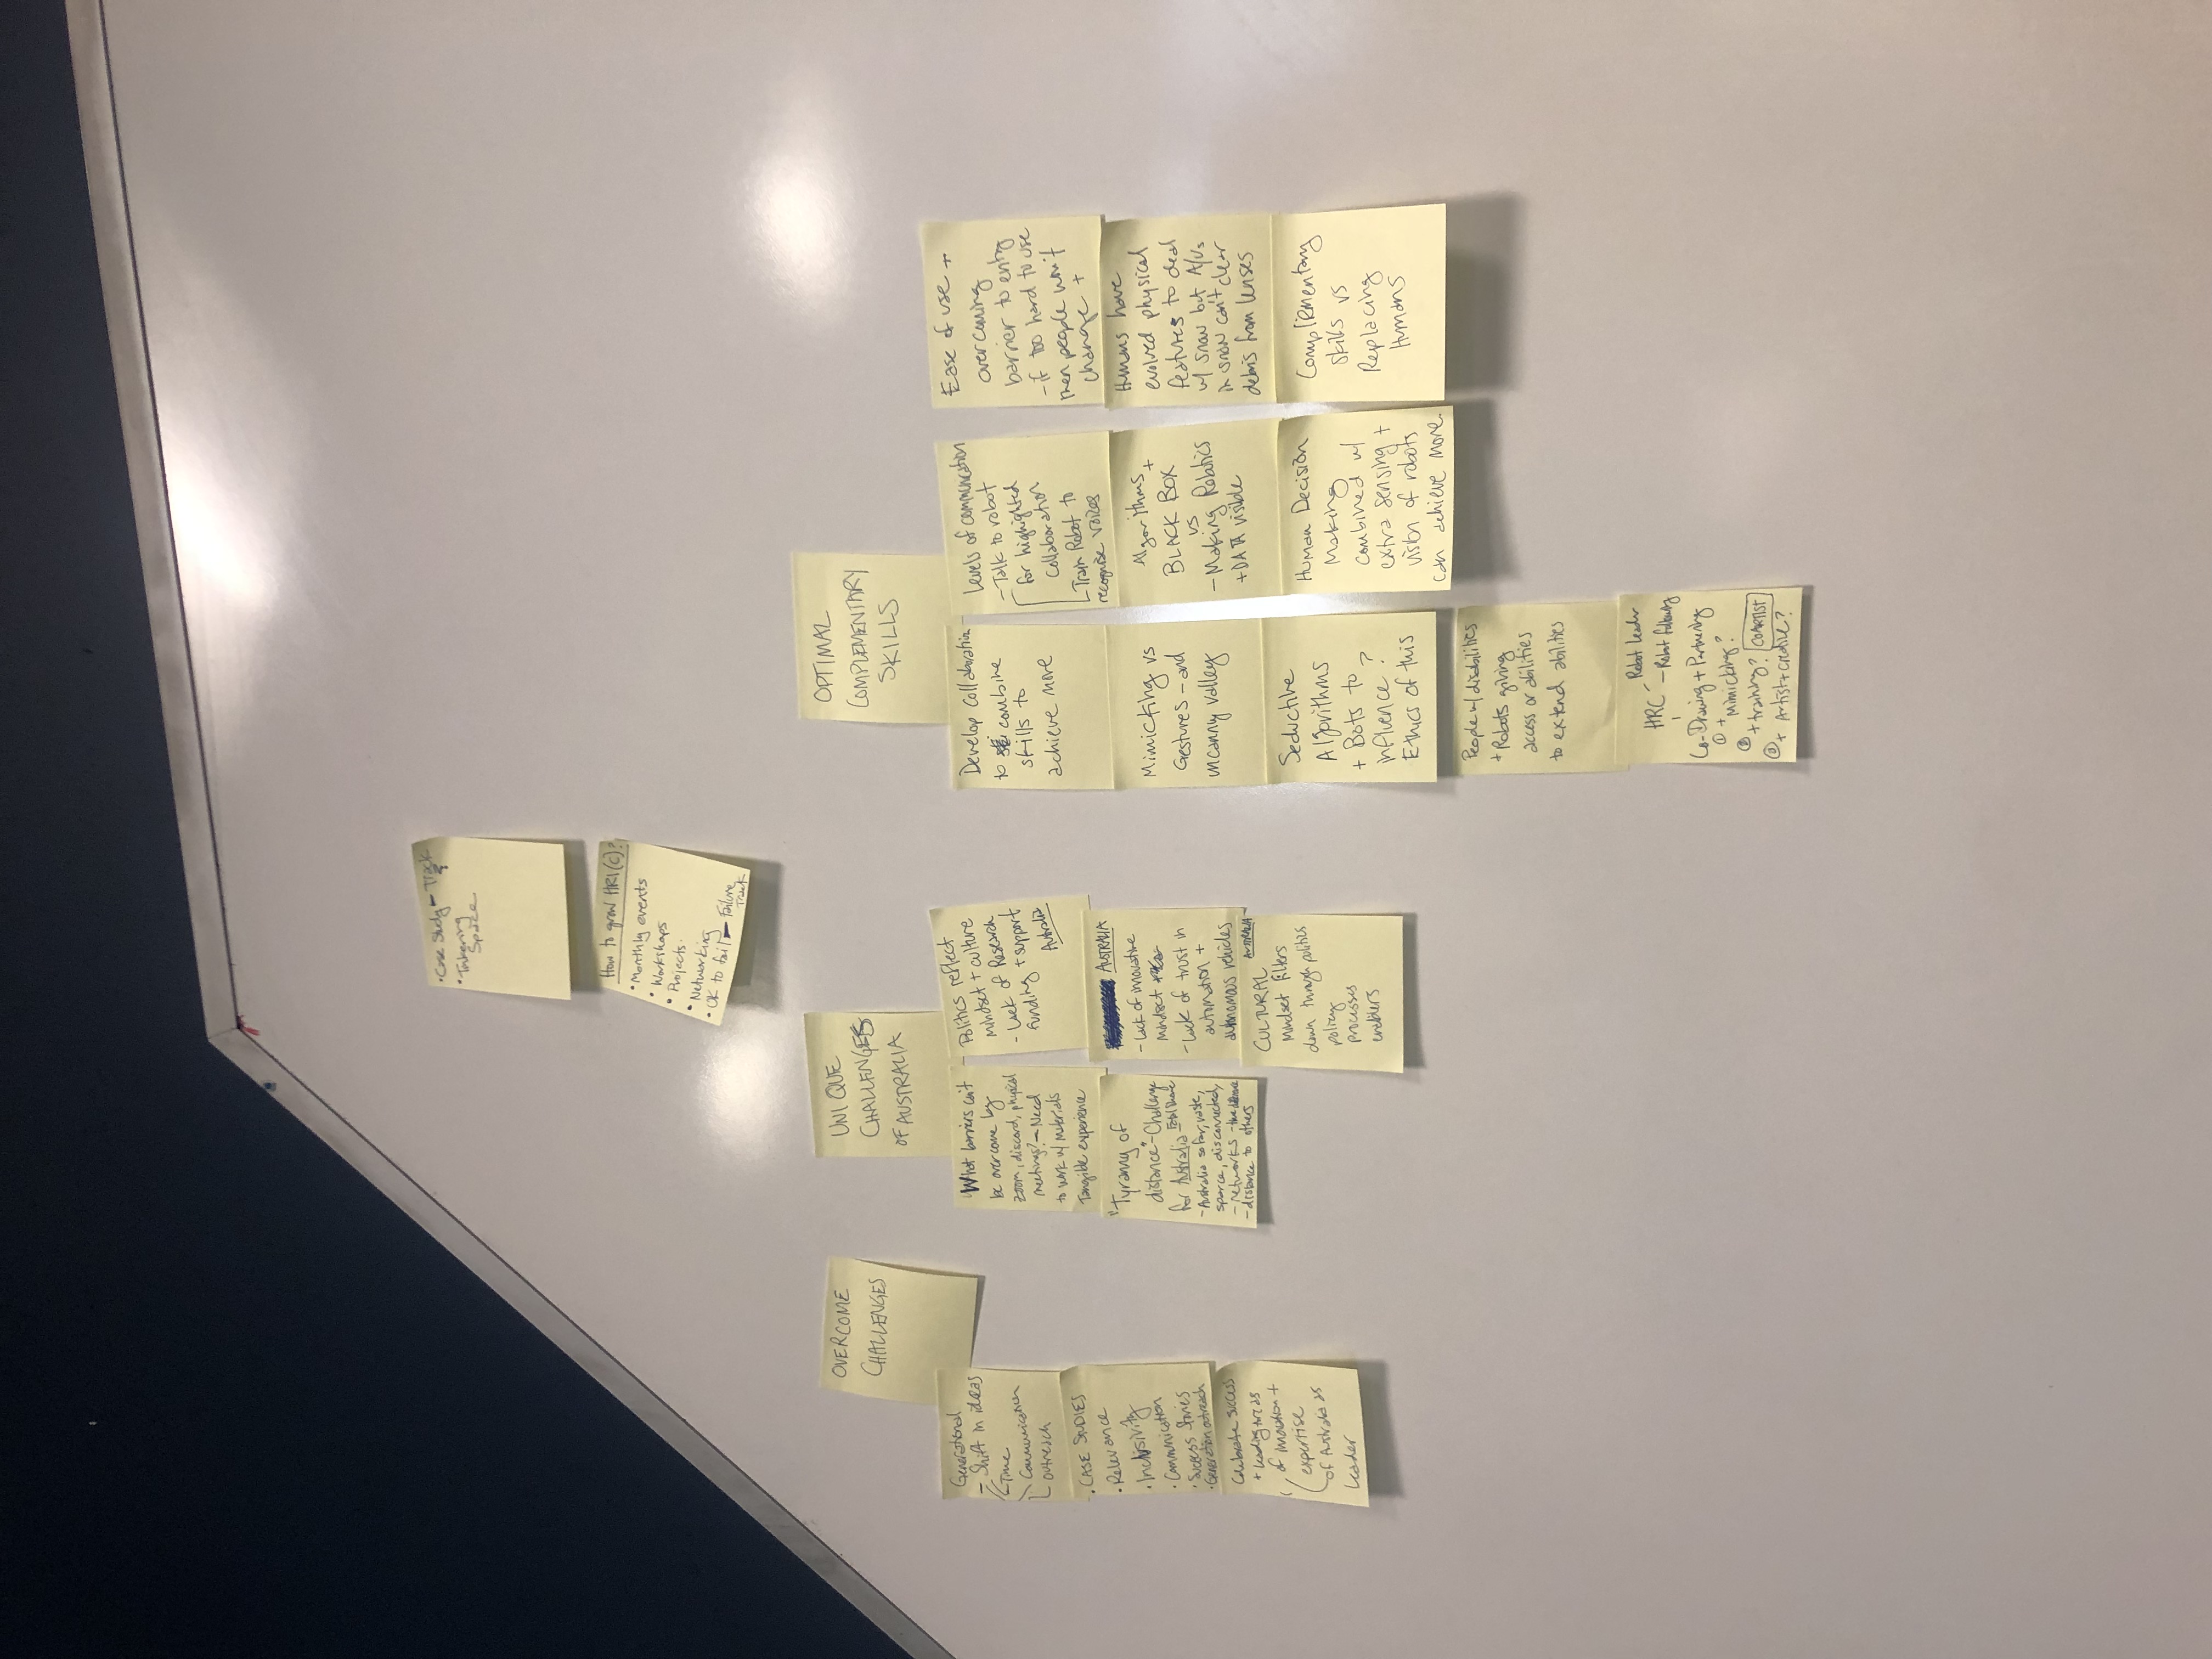 • Case Study – Track ?
• Tinkering
Space
How to grow HRI(C)?
• Monthly events
• Workshops
• Projects.
• Networking
• OK to fail – Failure
Track
OVERCOME
CHALLENGES
Generational
– Shift in ideas
– Time
Communication
outreach
• CASE STUDIES
• Relevance
• Inclusivity
• Communication
• Success Stories
• Generation outreach
Celebrate Success
+ Leading areas
of innovation +
expertise
of Australia as
leader
UNIQUE
CHALLENGES
OF AUSTRALIA
What barriers can't
be overcome by
zoom, discord, physical
meetings? – Need
to work w/ materials
Tangible experience
"Tyranny of
distance" – Challenge
for Australia
– Australia so far, vaste,
sparce, disconnected,
– networks – the
– distance to others
Politics reflect
mindset + culture
– Lack of Research
funding + support
Autralia
AUSTRALIA
– Lack of innovative
mindset
– Lack of trust in
automation +
autonomous vehicles
CULTURAL AUSTRALIA
Mindset filters
down through politics
policy
processes
enablers
OPTIMAL
COMPLEMENTARY
SKILLS
Develop collaboration
to combine
skills to
achieve more
Mimicking vs
Gestures – and
uncanny valley
Seductive
Algorithms
+ Bots to
influence ?
Ethics of this
People w/ disabilities
+ Robots giving
access or abilities
to extend abilities
HRC – Robot leader
– Robot following
Co-Drawing + Partnering
① + Mimicking?
② + training? COARTIST
③ + Artist + creative?
Levels of communication
– Talk to robot
for highlighted
collaboration
– Train Robot to
recognise voices
Algorithms +
BLACK BOX
vs
– Making Robotics
+ DATA visible
Human Decision
Making
combined w/
extra sensing +
vision of robots
can achieve more.
Ease of use +
overcoming
barrier to entry
– if too hard to use
then people won't
change +
Humans have
evolved physical
features to deal
w/ snow but A/Vs
in snow can't clear
debris from lenses
Complimentary
skills vs
Replacing
Humans